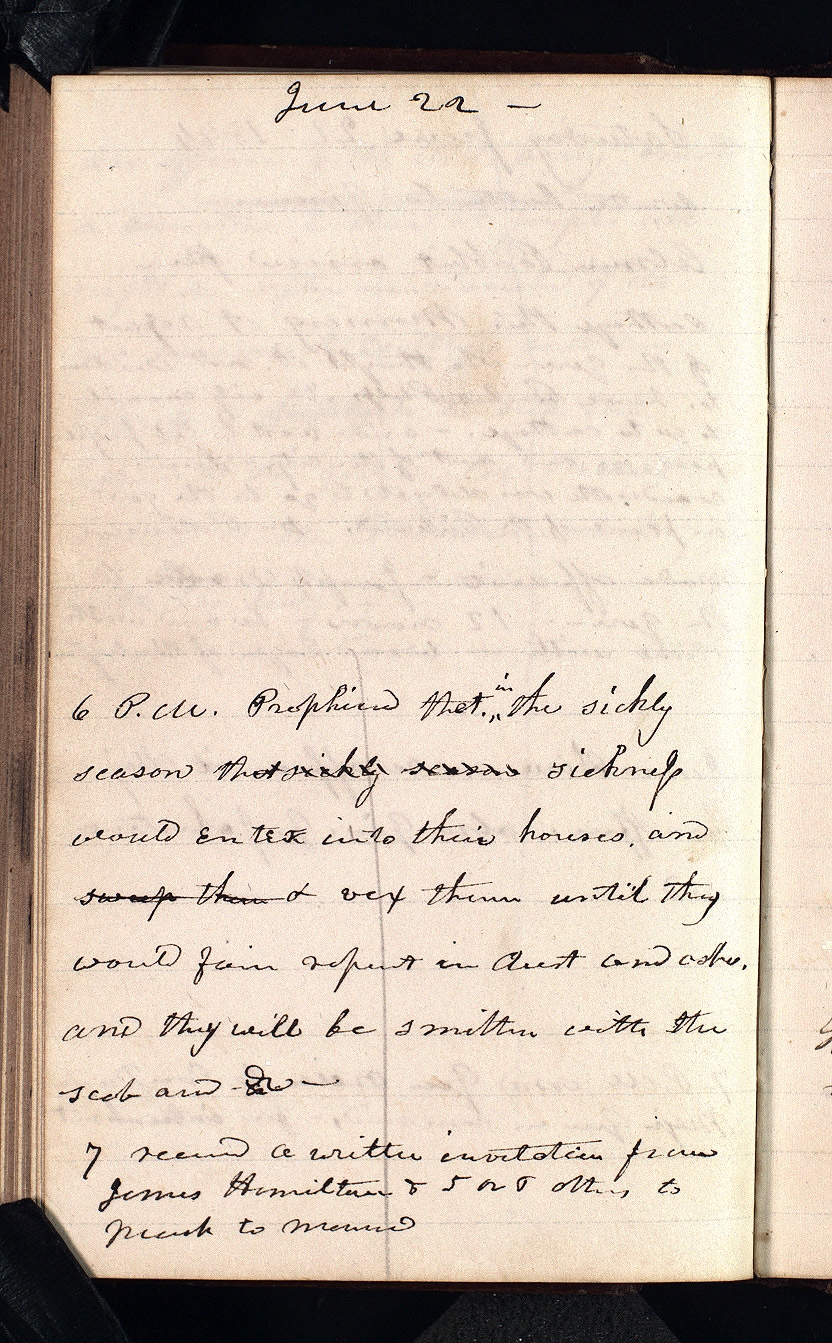 June 22 —
6 P.M. Prophicied that. in the sickly
season that sickly season sickness
would enter into their houses, and
sweep them & vex them until they
would fain repent in dust and ashes.
and they will be smitten with the
scab and &c —
7 received a written invitation from
James Hamilton & 5 or 8 others, to
preach to morrow